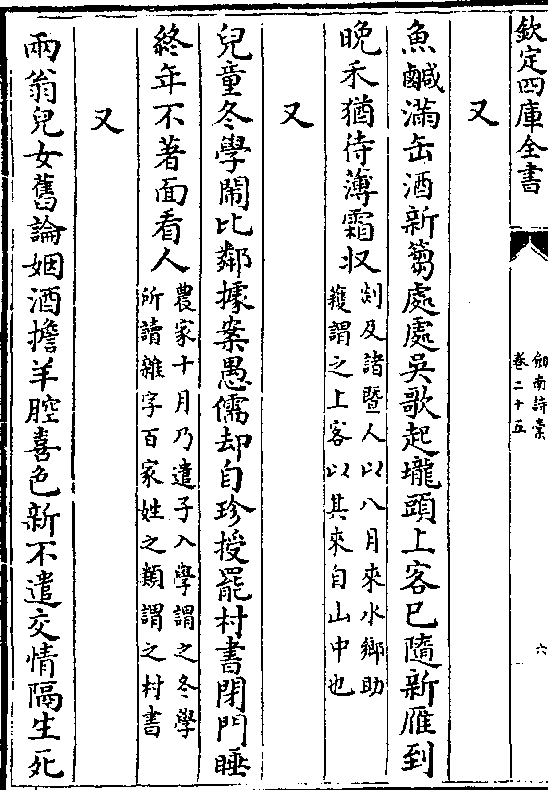 欽定四庫全書
劒南詩藁
卷二十五
六
又
魚鹹滿缶酒新蒭處處吳歌起壠頭上客已隨新雁到
晚禾猶待薄霜收
剡及諸暨人以八月來水鄉助
穫謂之上客以其來自山中也
又
兒童冬學鬧比鄰據案愚儒却自珍授罷村書閉門睡
終年不著面看人
農家十月乃遣子入學謂之冬學
所讀雜字百家姓之類謂之村書
又
兩翁兒女舊論姻酒擔羊腔喜色新不遣交情隔生死